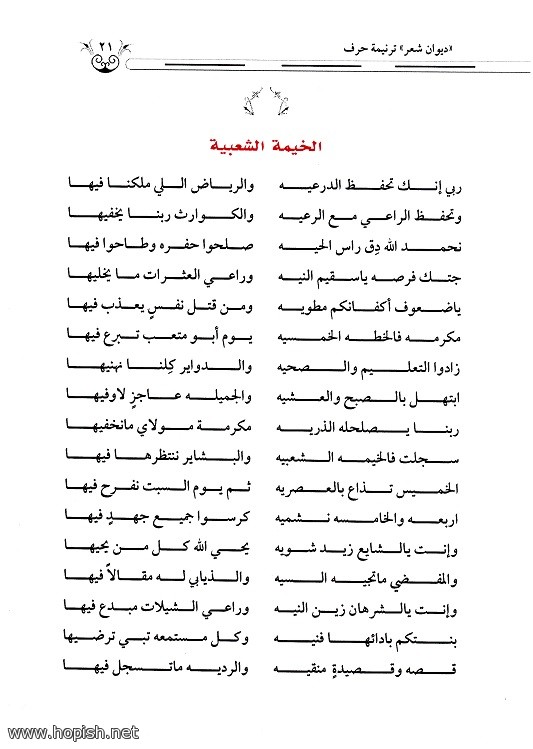 «ديوان شعر» ترنيمة حرف ٢١
الخيمة الشعبية
ربي إنك تحفظ الدرعيه والرياض اللي ملكنا فيها
وتحفظ الراعي مع الرعيه والكوارث ربنا يخفيها
نحمد الله دِق راس الحيه صلحوا حفره وطاحوا فيها
جتك فرصه ياسقيم النيه وراعي العثرات ما يخليها
ياضعوف أكفانكم مطويه ومن قتل نفسٍ يعذب فيها
مكرمه فالخطه الخمسيه يوم أبو متعب تبرع فيها
زادوا التعليم والصحيه والدواير كِلنا نهنيها
ابتهل بالصبح والعشيه والجميله عاجزٍ لاوفيها
ربنا يصلحله الذريه مكرمة مولاي مانخفيها
سجلت فالخيمه الشعبيه والبشاير ننتظرها فيها
الخميس تذاع بالعصريه ثم يوم السبت نفرح فيها
اربعه والخامسه نشميه كرسوا جميع جهدٍ فيها
وإنت يالشايع زيد شويه يحي الله كل من يحيها
والمفضي ماتجيه السيه والذيابي له مقالاً فيها
وإنت يالشرهان زين النيه وراعي الشيلات مبدع فيها
بنتكم بادائها فنيه وكل مستمعه تبي ترضيها
قصه وقصيدةٍ منقيه والرديه ماتسجل فيها
www.hopish.net